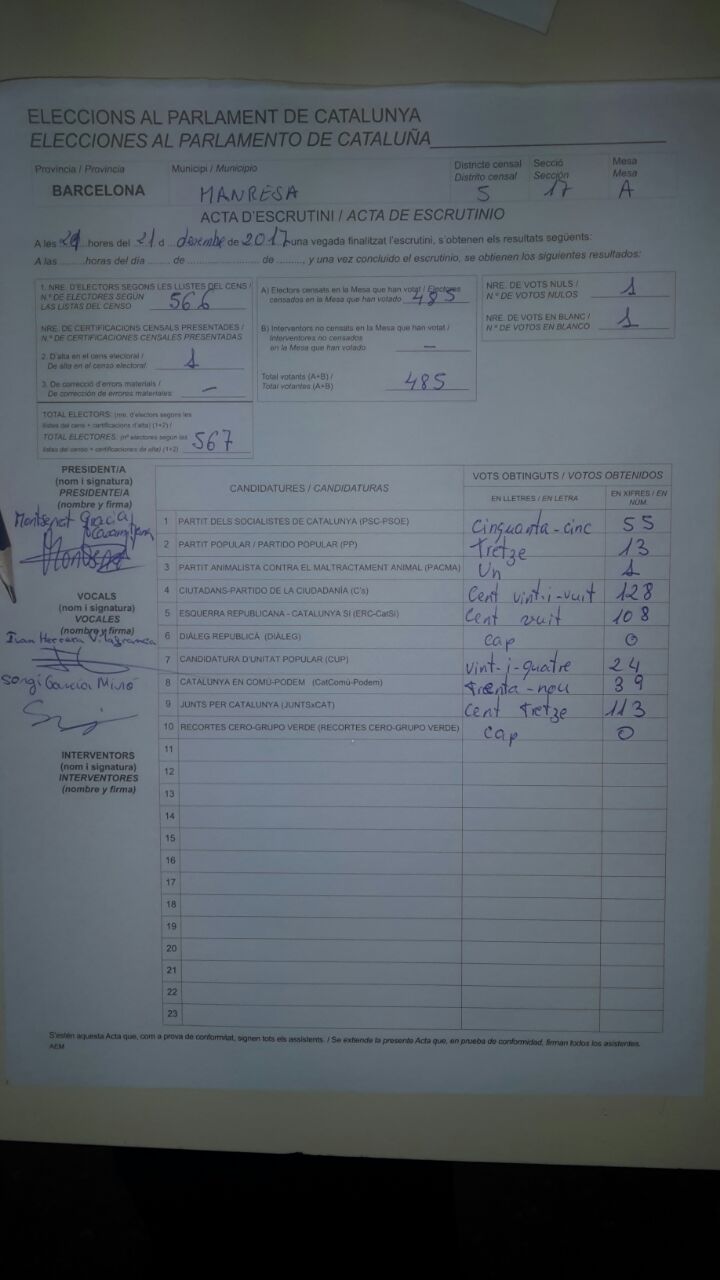 ELECCIONS AL PARLAMENT DE CATALUNYA
ELECCIONES AL PARLAMENTO DE CATALUÑA
Provincia / Provincia Municipi / Municipio Districte censal Secció Mesa
Distrito censal Sección Mesa
BARCELONA MANRESA 5 17 A
ACTA D'ESCRUTINI / ACTA DE ESCRUTINIO
A les hores del 21 d desembre de 2017 una vegada finalitzat l'escrutini, s'obtenen els resultats següents:
A las ........ horas del día ........ de ........ de ........, y una vez concluido el escrutinio, se obtienen los siguientes resultados:
1. NRE. D'ELECTORS SEGONS LES LLISTES DEL CENS /
N.º DE ELECTORES SEGÚN
LAS LISTAS DEL CENSO 566
NRE. DE CERTIFICACIONS CENSALS PRESENTADES /
N.º DE CERTIFICACIONES CENSALES PRESENTADAS
2. D'alta en el cens electoral /
De alta en el censo electoral. 1
3. De correcció d'errors materials /
De corrección de errores materiales –
TOTAL ELECTORS: (nre. d'electors segons les
llistes del cens + certificacions d'alta) (1+2) /
TOTAL ELECTORES: (nº electores según las
listas del censo + certificaciones de alta) (1+2) 567
A) Electors censats en la Mesa que han votat / Electores
censados en la Mesa que han votado 485
B) Interventors no censats en la Mesa que han votat /
Interventores no censados
en la Mesa que han votado –
Total votants (A+B) /
Total votantes (A+B) 485
NRE. DE VOTS NULS /
N.º DE VOTOS NULOS 1
NRE. DE VOTS EN BLANC /
N.º DE VOTOS EN BLANCO 1
PRESIDENT/A
(nom i signatura)
PRESIDENTE/A
(nombre y firma)
Montserrat Gracia
VOCALS
(nom i signatura)
VOCALES
(nombre y firma)
Ivan Herrera
Sergi Garcia Miró
INTERVENTORS
(nom i signatura)
INTERVENTORES
(nombre y firma)
CANDIDATURES / CANDIDATURAS VOTS OBTINGUTS / VOTOS OBTENIDOS
EN LLETRES / EN LETRA EN XIFRES / EN NÚM.
1 PARTIT DELS SOCIALISTES DE CATALUNYA (PSC-PSOE) Cinquanta-cinc 55
2 PARTIT POPULAR / PARTIDO POPULAR (PP) Tretze 13
3 PARTIT ANIMALISTA CONTRA EL MALTRACTAMENT ANIMAL (PACMA) Un 1
4 CIUTADANS-PARTIDO DE LA CIUDADANÍA (C's) Cent vint-i-vuit 128
5 ESQUERRA REPUBLICANA - CATALUNYA SÍ (ERC-CatSí) Cent vuit 108
6 DIÀLEG REPUBLICÀ (DIÀLEG) cap 0
7 CANDIDATURA D'UNITAT POPULAR (CUP) vint-i-quatre 24
8 CATALUNYA EN COMÚ-PODEM (CatComú-Podem) trenta-nou 39
9 JUNTS PER CATALUNYA (JUNTSxCAT) Cent tretze 113
10 RECORTES CERO-GRUPO VERDE (RECORTES CERO-GRUPO VERDE) cap 0
11
12
13
14
15
16
17
18
19
20
21
22
23
S'estén aquesta Acta que, com a prova de conformitat, signen tots els assistents. / Se extiende la presente Acta que, en prueba de conformidad, firman todos los asistentes.
AEM